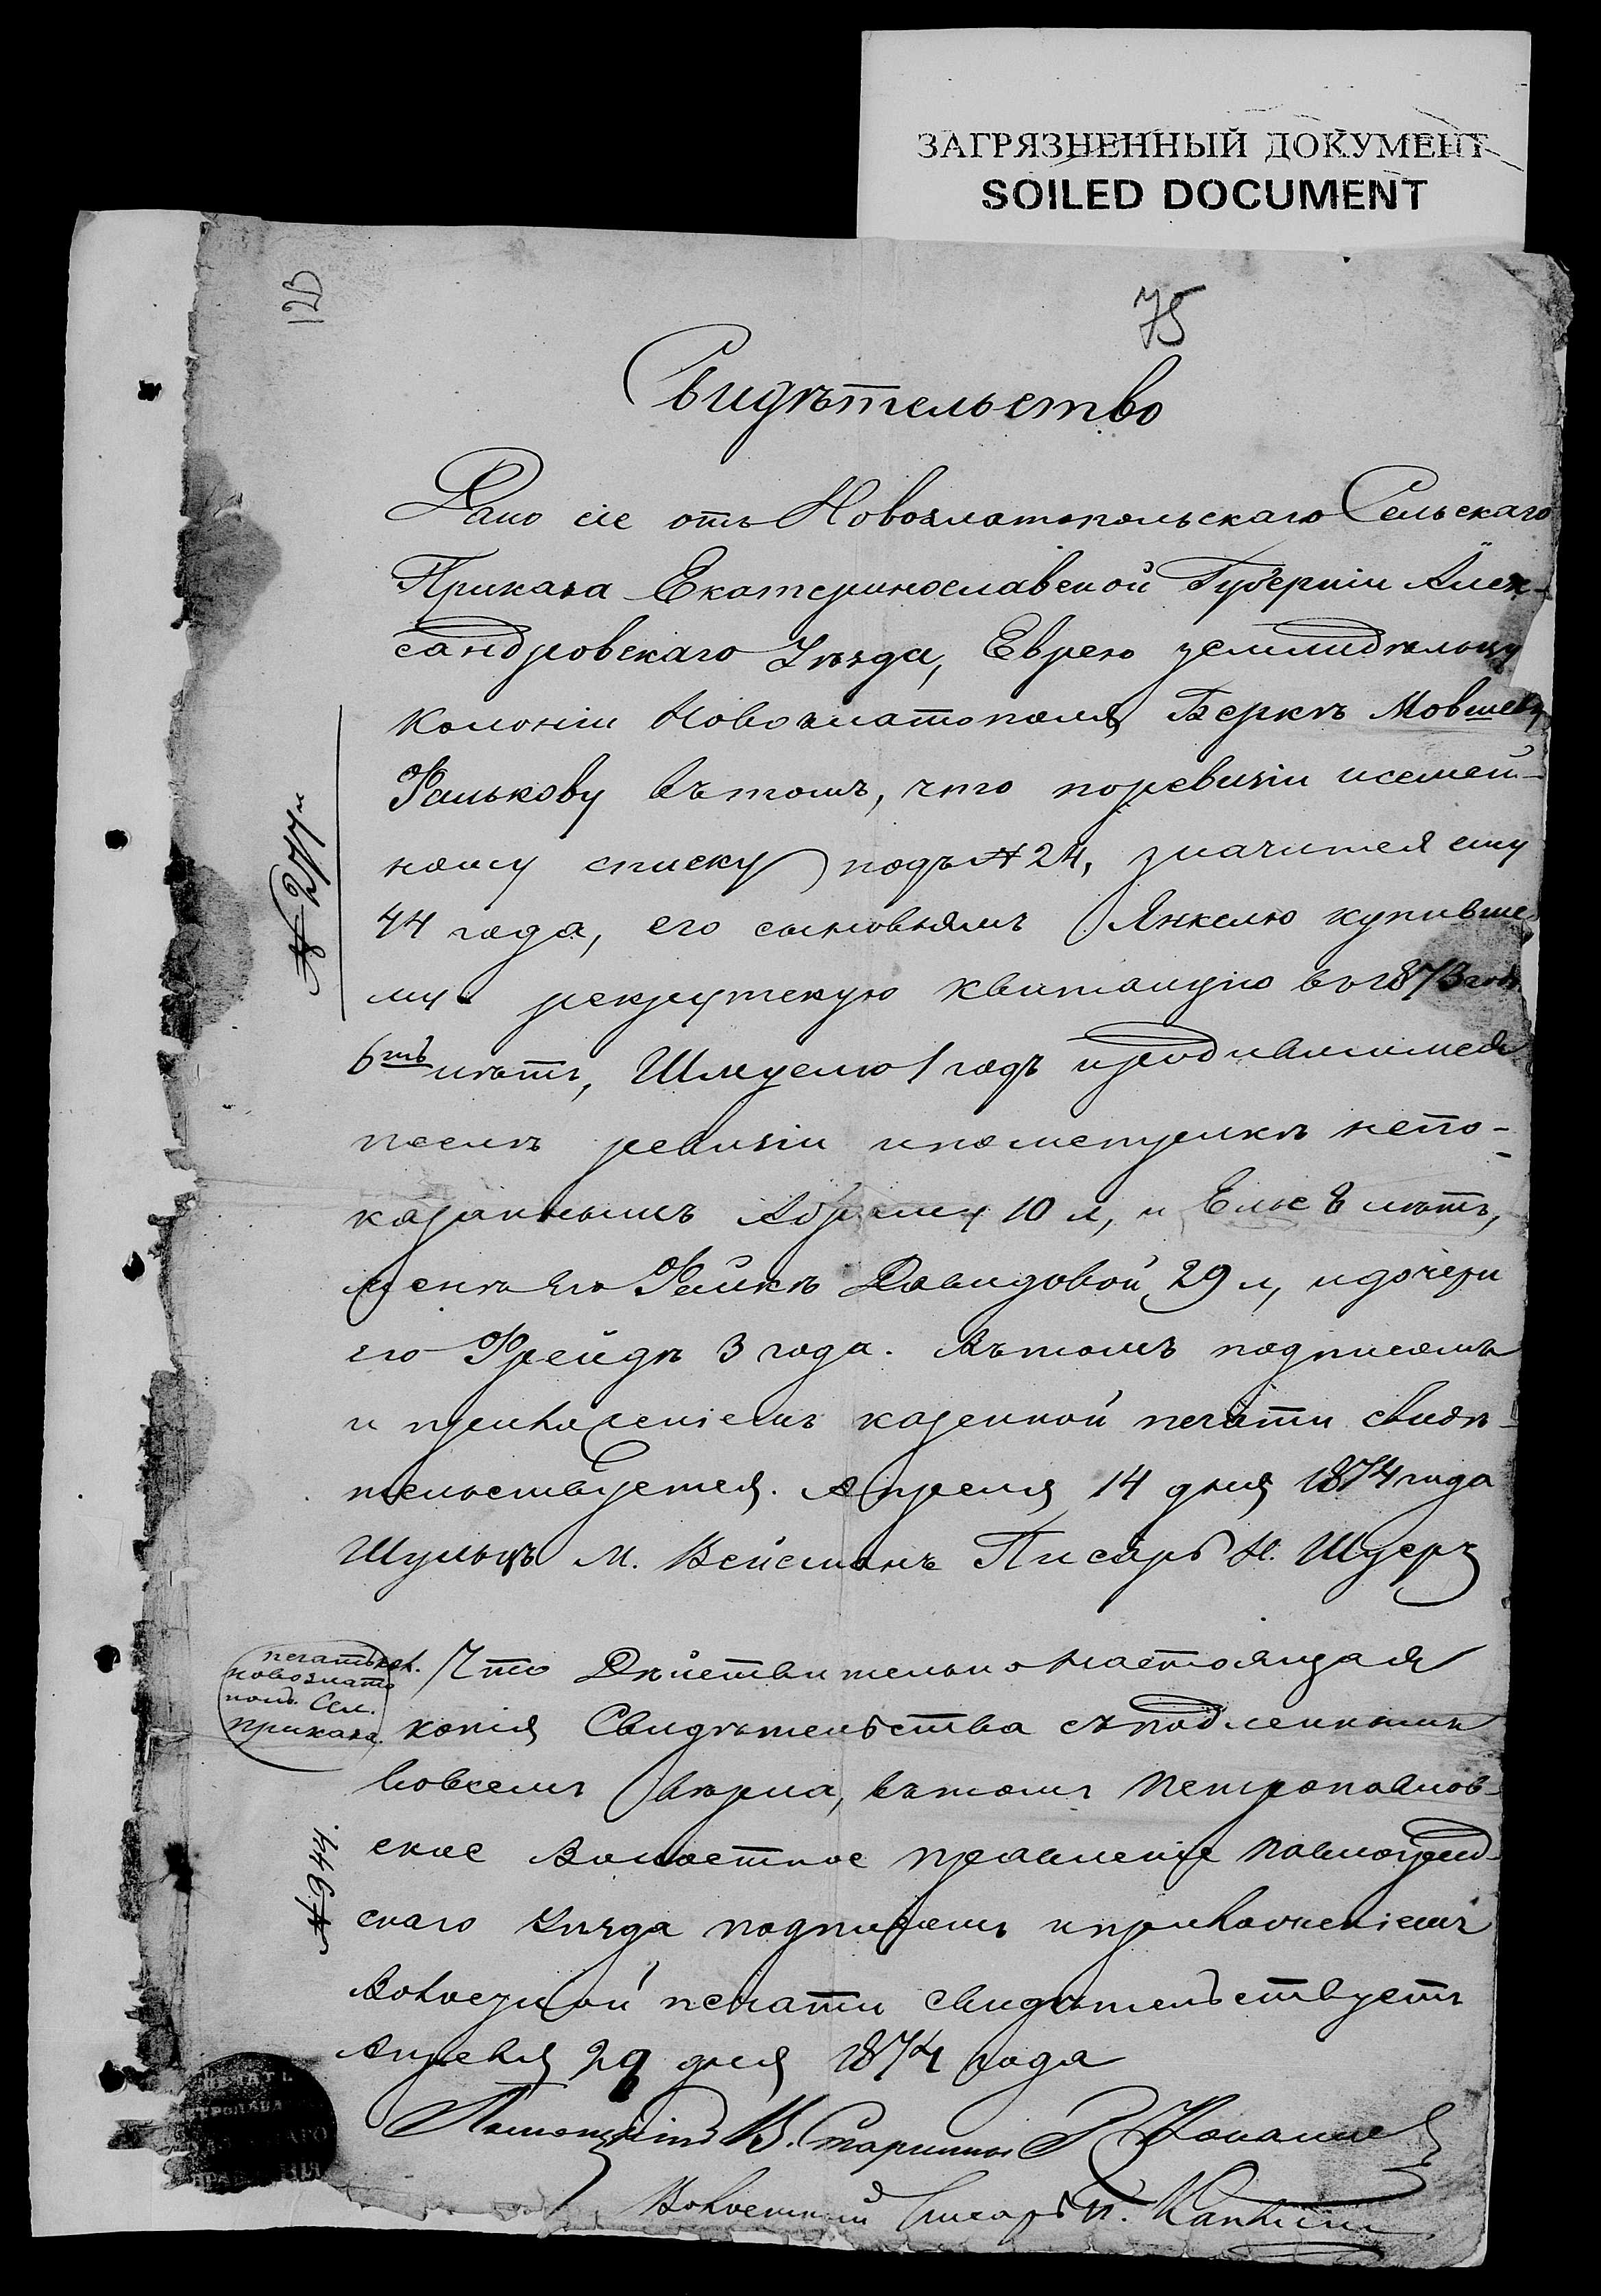 ЗАГРЯЗНЕННЫЙ ДОКУМЕНТ
SOILED DOCUMENT
75
Свидѣтельство
Дано сіе отъ Новозлатопольскаго Сельскаго
Приказа Екатеринославской Губерніи Алек-
сандровскаго Уѣзда, Еврею земледѣльцу
Колоніи Новозлатополя Беркѣ Мовшеву
Фалькову въ томъ, что поревизіи исемей-
ному списку подъ № 24, значится ему
44 года, его сыновьямъ Янкелю купивше
му рекрутскую квитанцію въ 1873 году
6ть лѣтъ, Шмуелю 1 годъ
послѣ ревизіи непо-
казаннымъ Абраму 10 л, и Елье 8 лѣтъ,
женѣ его Фейкѣ Давидовой 29 л, идочери
его Фрейдѣ 3 года. Вътомъ подписомъ
и приложеніемъ казенной печати свидѣ-
тельствуется. Апреля 14 дня 1874 года
Шульцъ М. Вейсманъ Писарь Н. Шусеръ
№ 277й
печать
новозлато
пол. Сел.
приказа.
Что Дѣйствительно настоящая
копія Свидѣтельства съподленнымъ
вовсемъ вѣрна, вътомъ Петропавлов-
ское Волостное правленіе Павлоград-
скаго Уѣзда подписомъ иприложеніемъ
Волостной печати свидѣтельствуетъ
Апреля 29 дня 1874 года
№ 944.
В. Старшины
Волостный Писарь